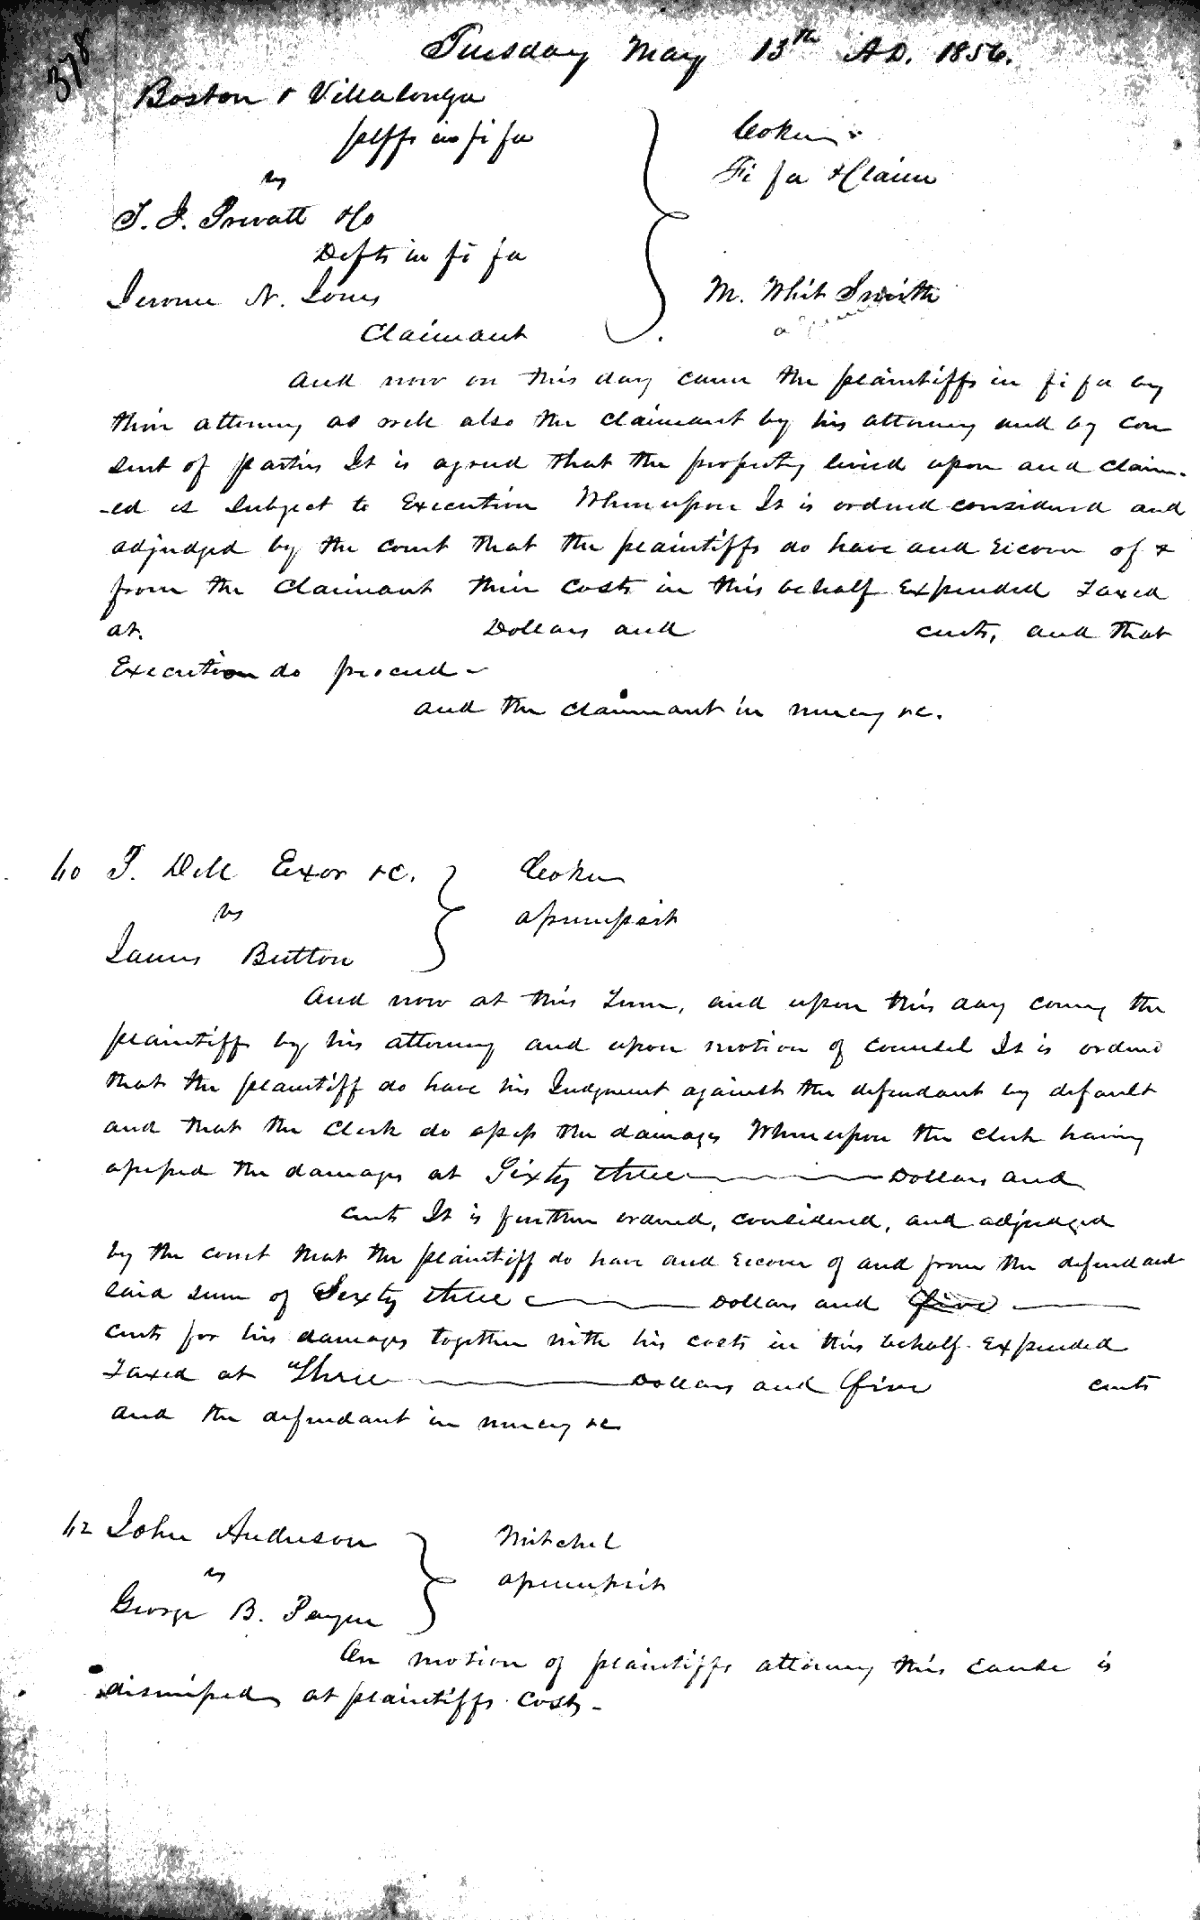 378
Tuesday May 13th AD. 1856.
Boston & Villalonga
plffs in fi fa
vs
T. J. Prevatt & Co
Defts in fi fa
Jerome N. Jones
Claimant
Coker
Fi fa & Claim
M. Whit Smith
And now on this day came the plaintiffs in fi fa by
their attorney as well also the claimant by his attorney and by con
sent of parties It is agreed that the property levied upon and claim-
-ed is Subject to Execution Whereupon It is ordered considered and
adjudged by the court that the plaintiffs do have and Recover of &
from the Claimant their Costs in this behalf Expended Taxed
at. Dollars and cents, and that
Execution do proceed -
and the claimant in mercy &c.
60 T. Dell Exor &c.
vs
James Button
Coker
assumpsit
And now at this Term, and upon this day comes the
plaintiff by his attorney and upon motion of counsel It is ordered
that the plaintiff do have his Judgment against the defendant by default
and that the Clerk do assess the damages Whereupon the clerk having
assessed the damages at Sixty three Dollars and
cents It is further ordered, considered, and adjudged
by the court that the plaintiff do have and Recover of and from the defendant
said sum of Sixty three Dollars and five
cents for his damages together with his costs in this behalf Expended
Taxed at Three Dollars and five cents
and the defendant in mercy &c
62 John Anderson
vs
George B. Payne
Mitchel
assumpsit
On motion of plaintiffs attorney this cause is
dismissed at plaintiffs costs -